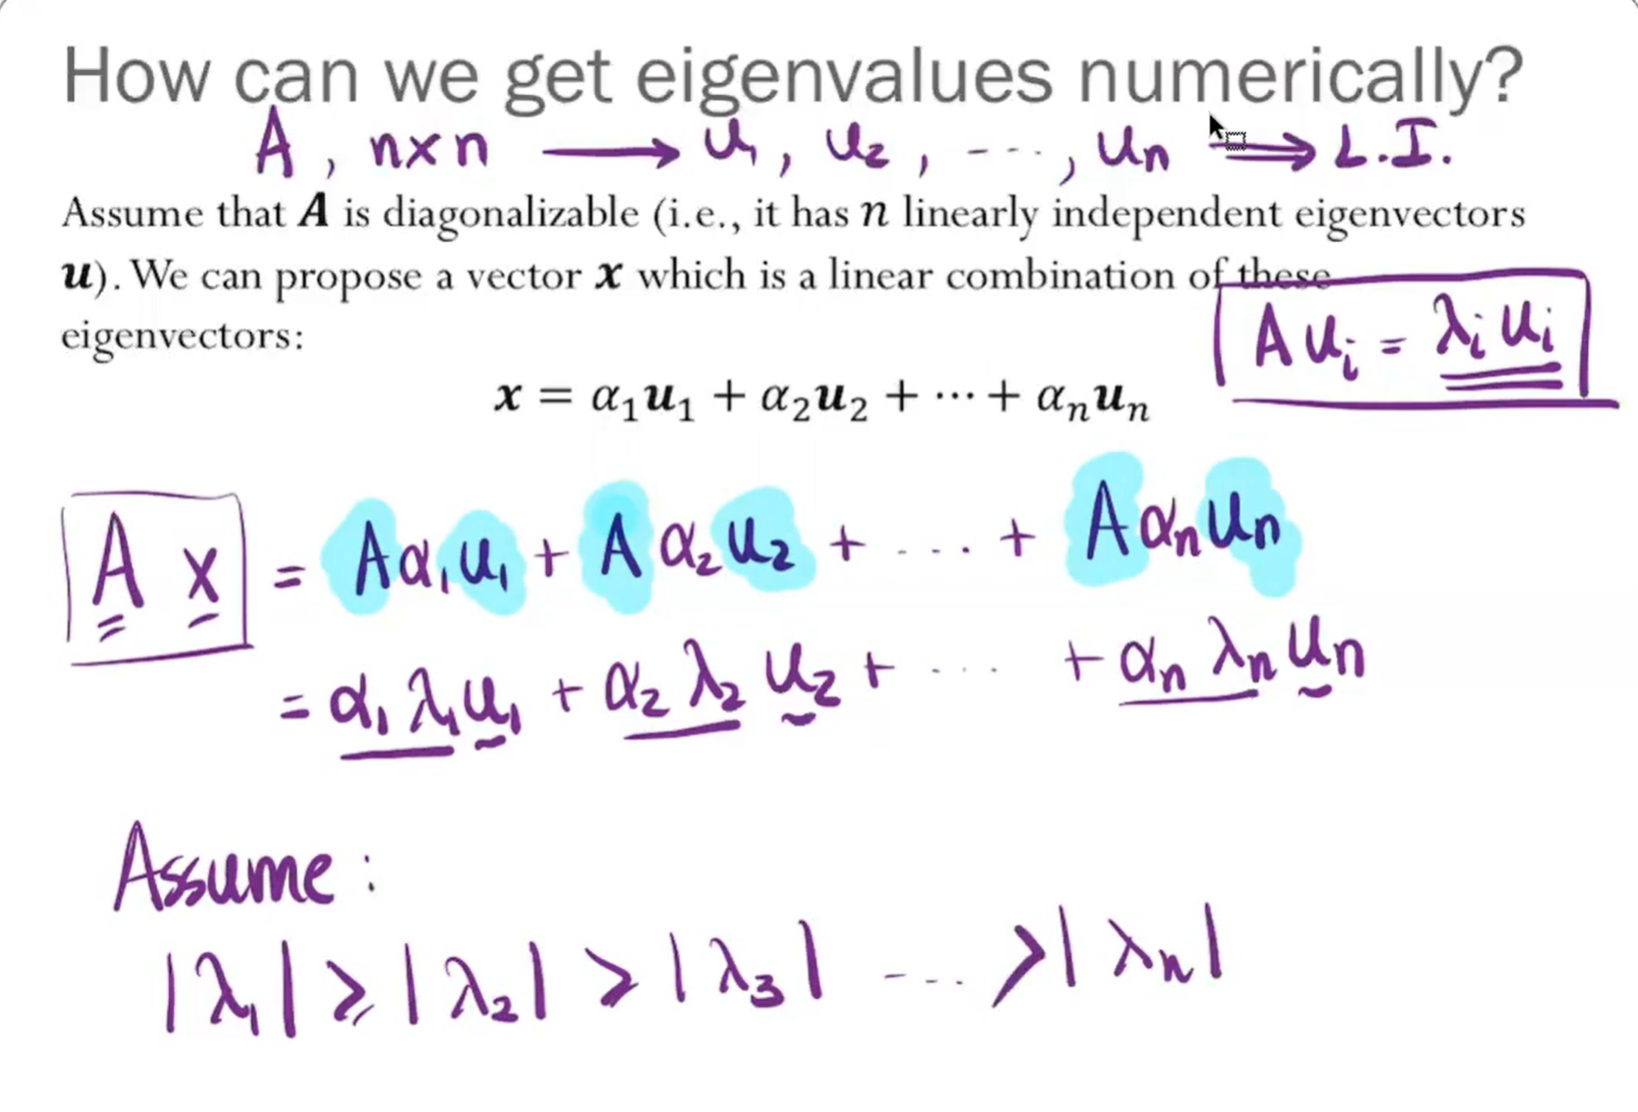 How can we get eigenvalues numerically?
A, n×n ⟶ u₁, u₂, ---, uₙ ⟹ L.I.
Assume that A is diagonalizable (i.e., it has n linearly independent eigenvectors
u). We can propose a vector x which is a linear combination of these
eigenvectors:
A uᵢ = λᵢ uᵢ
x = α₁u₁ + α₂u₂ + ⋯ + αₙuₙ
A x = Aα₁u₁ + Aα₂u₂ + .... + Aαₙuₙ
= α₁λ₁u₁ + α₂λ₂u₂ + .... + αₙλₙuₙ
Assume:
|λ₁| ≥ |λ₂| > |λ₃| ---. > |λₙ|